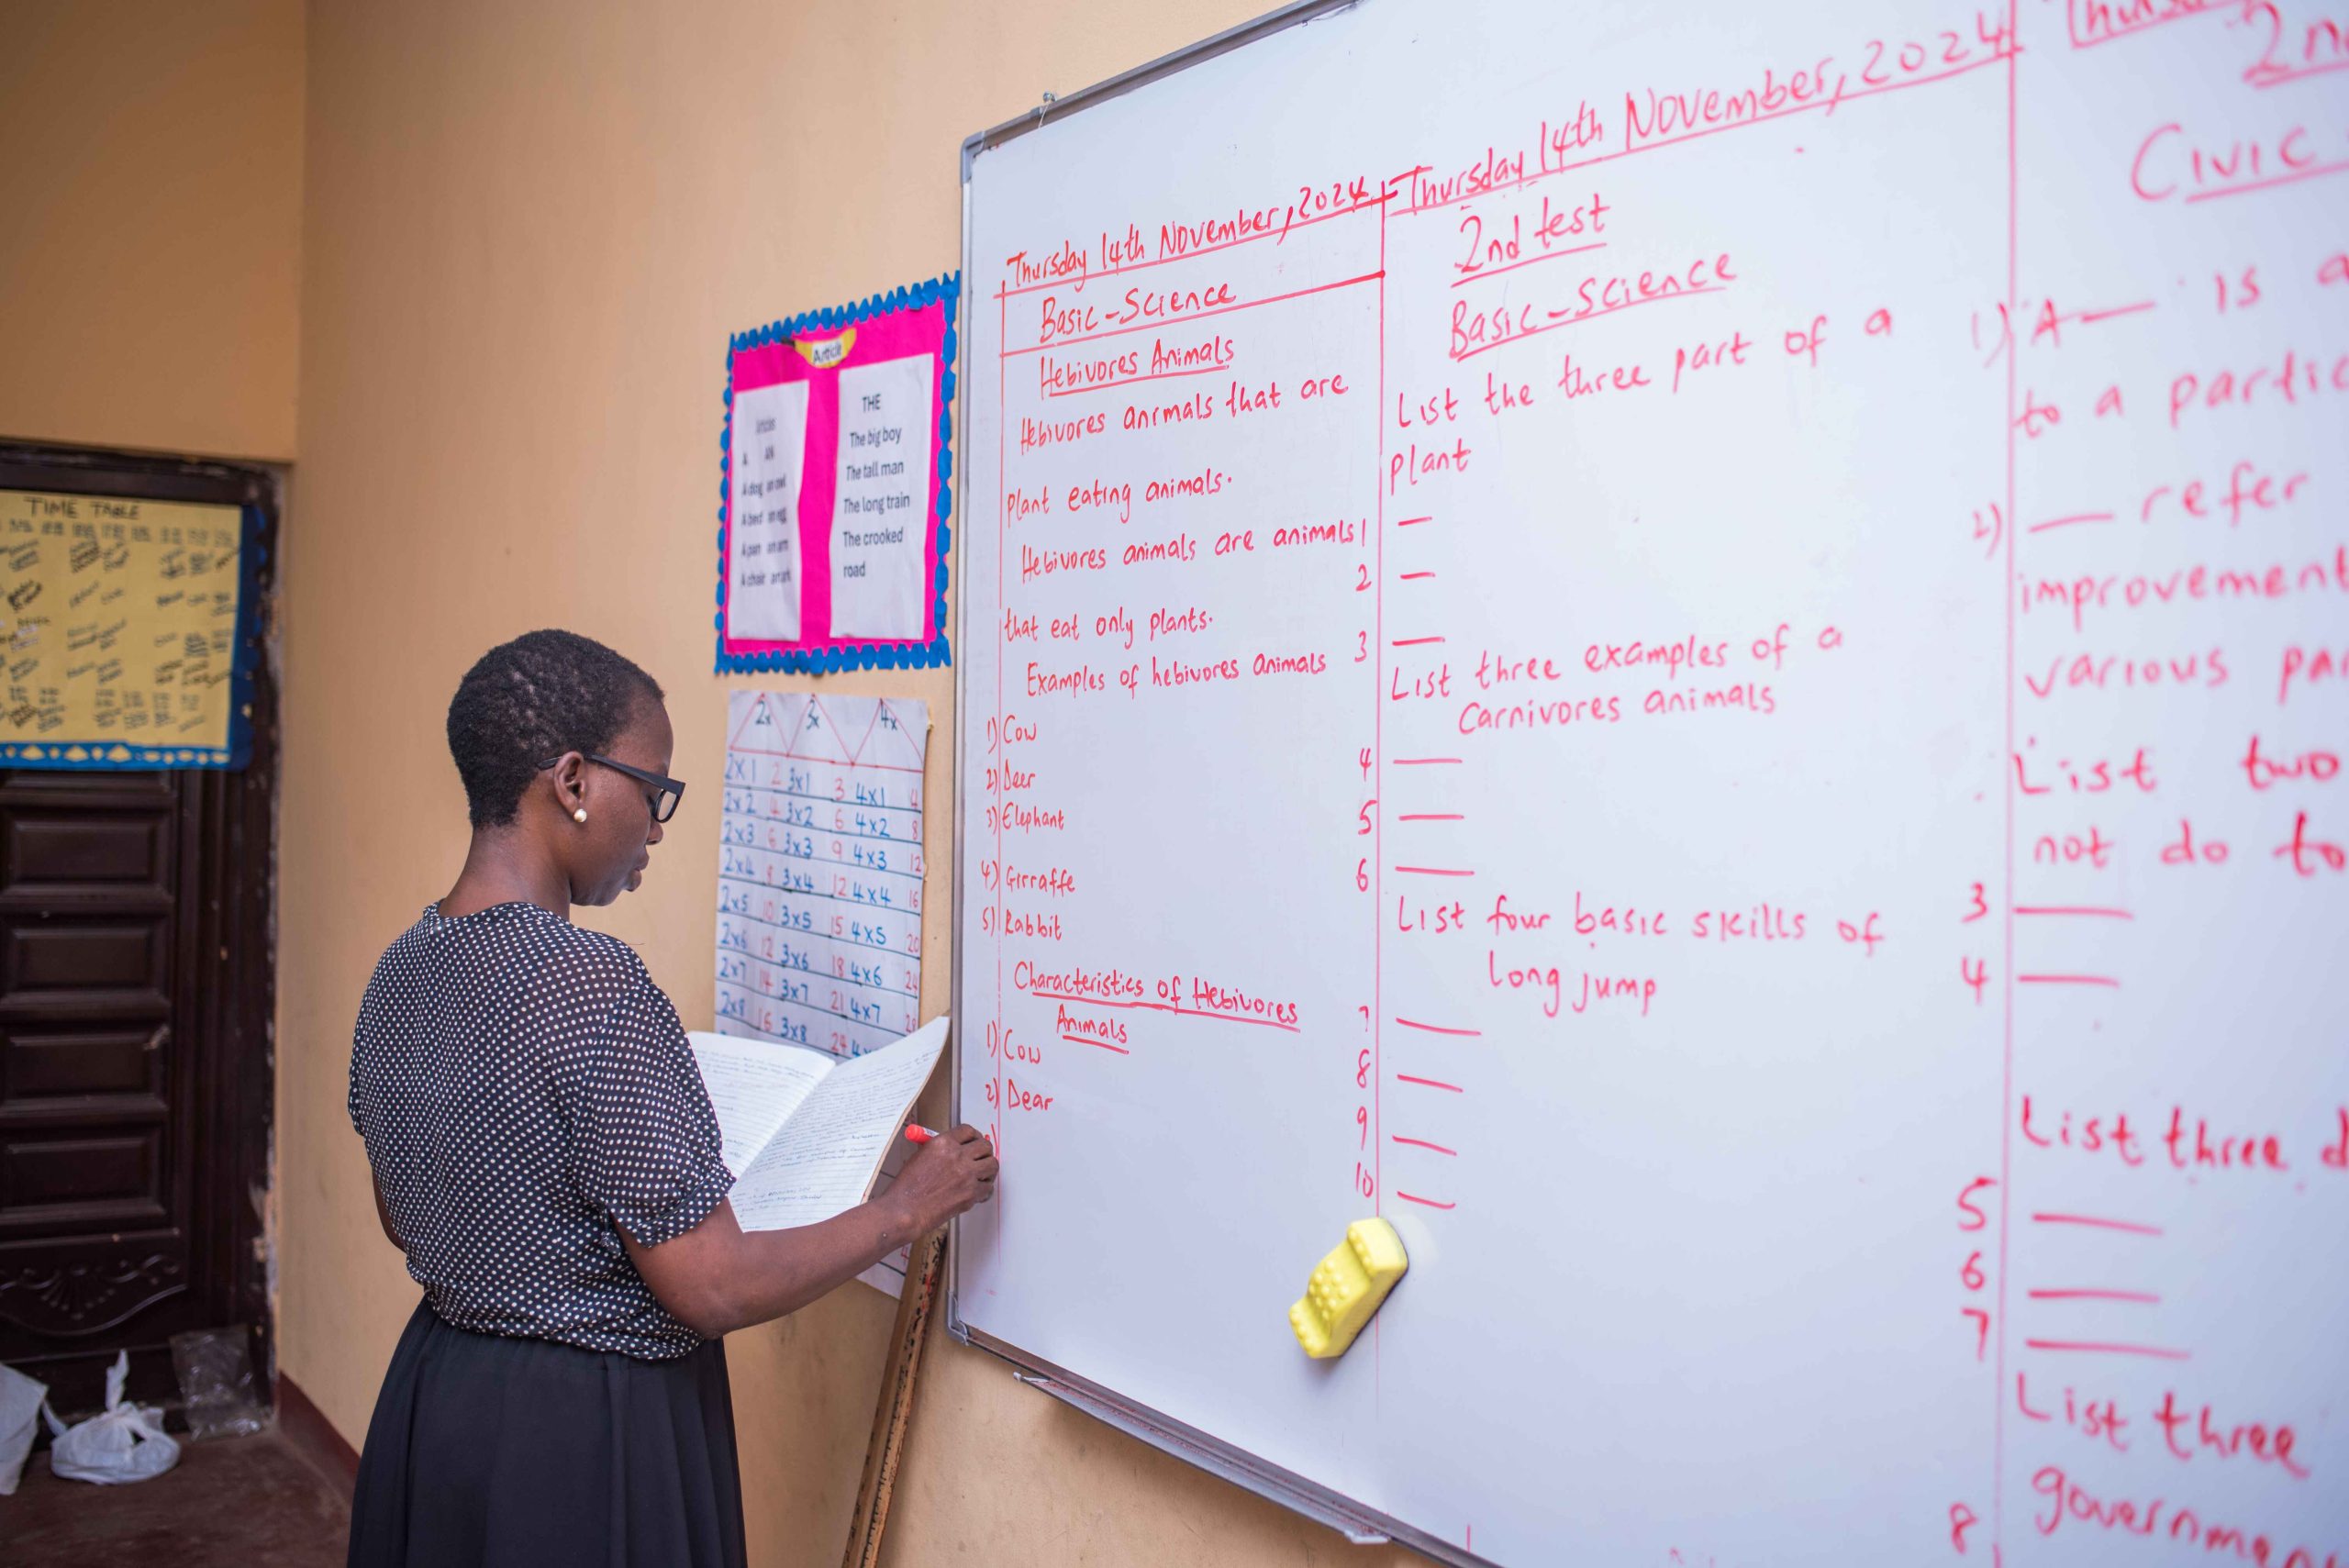 TIME TABLE
Article
Articles
A AN
A dog an owl
A bed an egg
A pan an arm
A chair an ark
THE
The big boy
The tall man
The long train
The crooked
road
2x 3x 4x
2x1 2 3x1 3 4x1 4
2x2 4 3x2 6 4x2 8
2x3 6 3x3 9 4x3 12
2x4 8 3x4 12 4x4 16
2x5 10 3x5 15 4x5 20
2x6 12 3x6 18 4x6 24
2x7 14 3x7 21 4x7 28
2x8 16 3x8 24 4x
Thursday 14th November, 2024
Basic-Science
Hebivores Animals
Hebivores animals that are
plant eating animals.
Hebivores animals are animals
that eat only plants.
Examples of hebivores animals
1) Cow
2) Deer
3) Elephant
4) Girraffe
5) Rabbit
Characteristics of Hebivores
Animals
1) Cow
2) Dear
Thursday 14th November, 2024
2nd test
Basic-Science
List the three part of a
plant
1 —
2 —
3 —
List three examples of a
Carnivores animals
4 —
5 —
6 —
List four basic skills of
long jump
7 —
8 —
9 —
10 —
Thursd
2nd
Civic
1) A — is a
to a partic
2) — refer
improvement
various pa
List two
not do to
3 —
4 —
List three d
5 —
6 —
7 —
List three
governmen
8